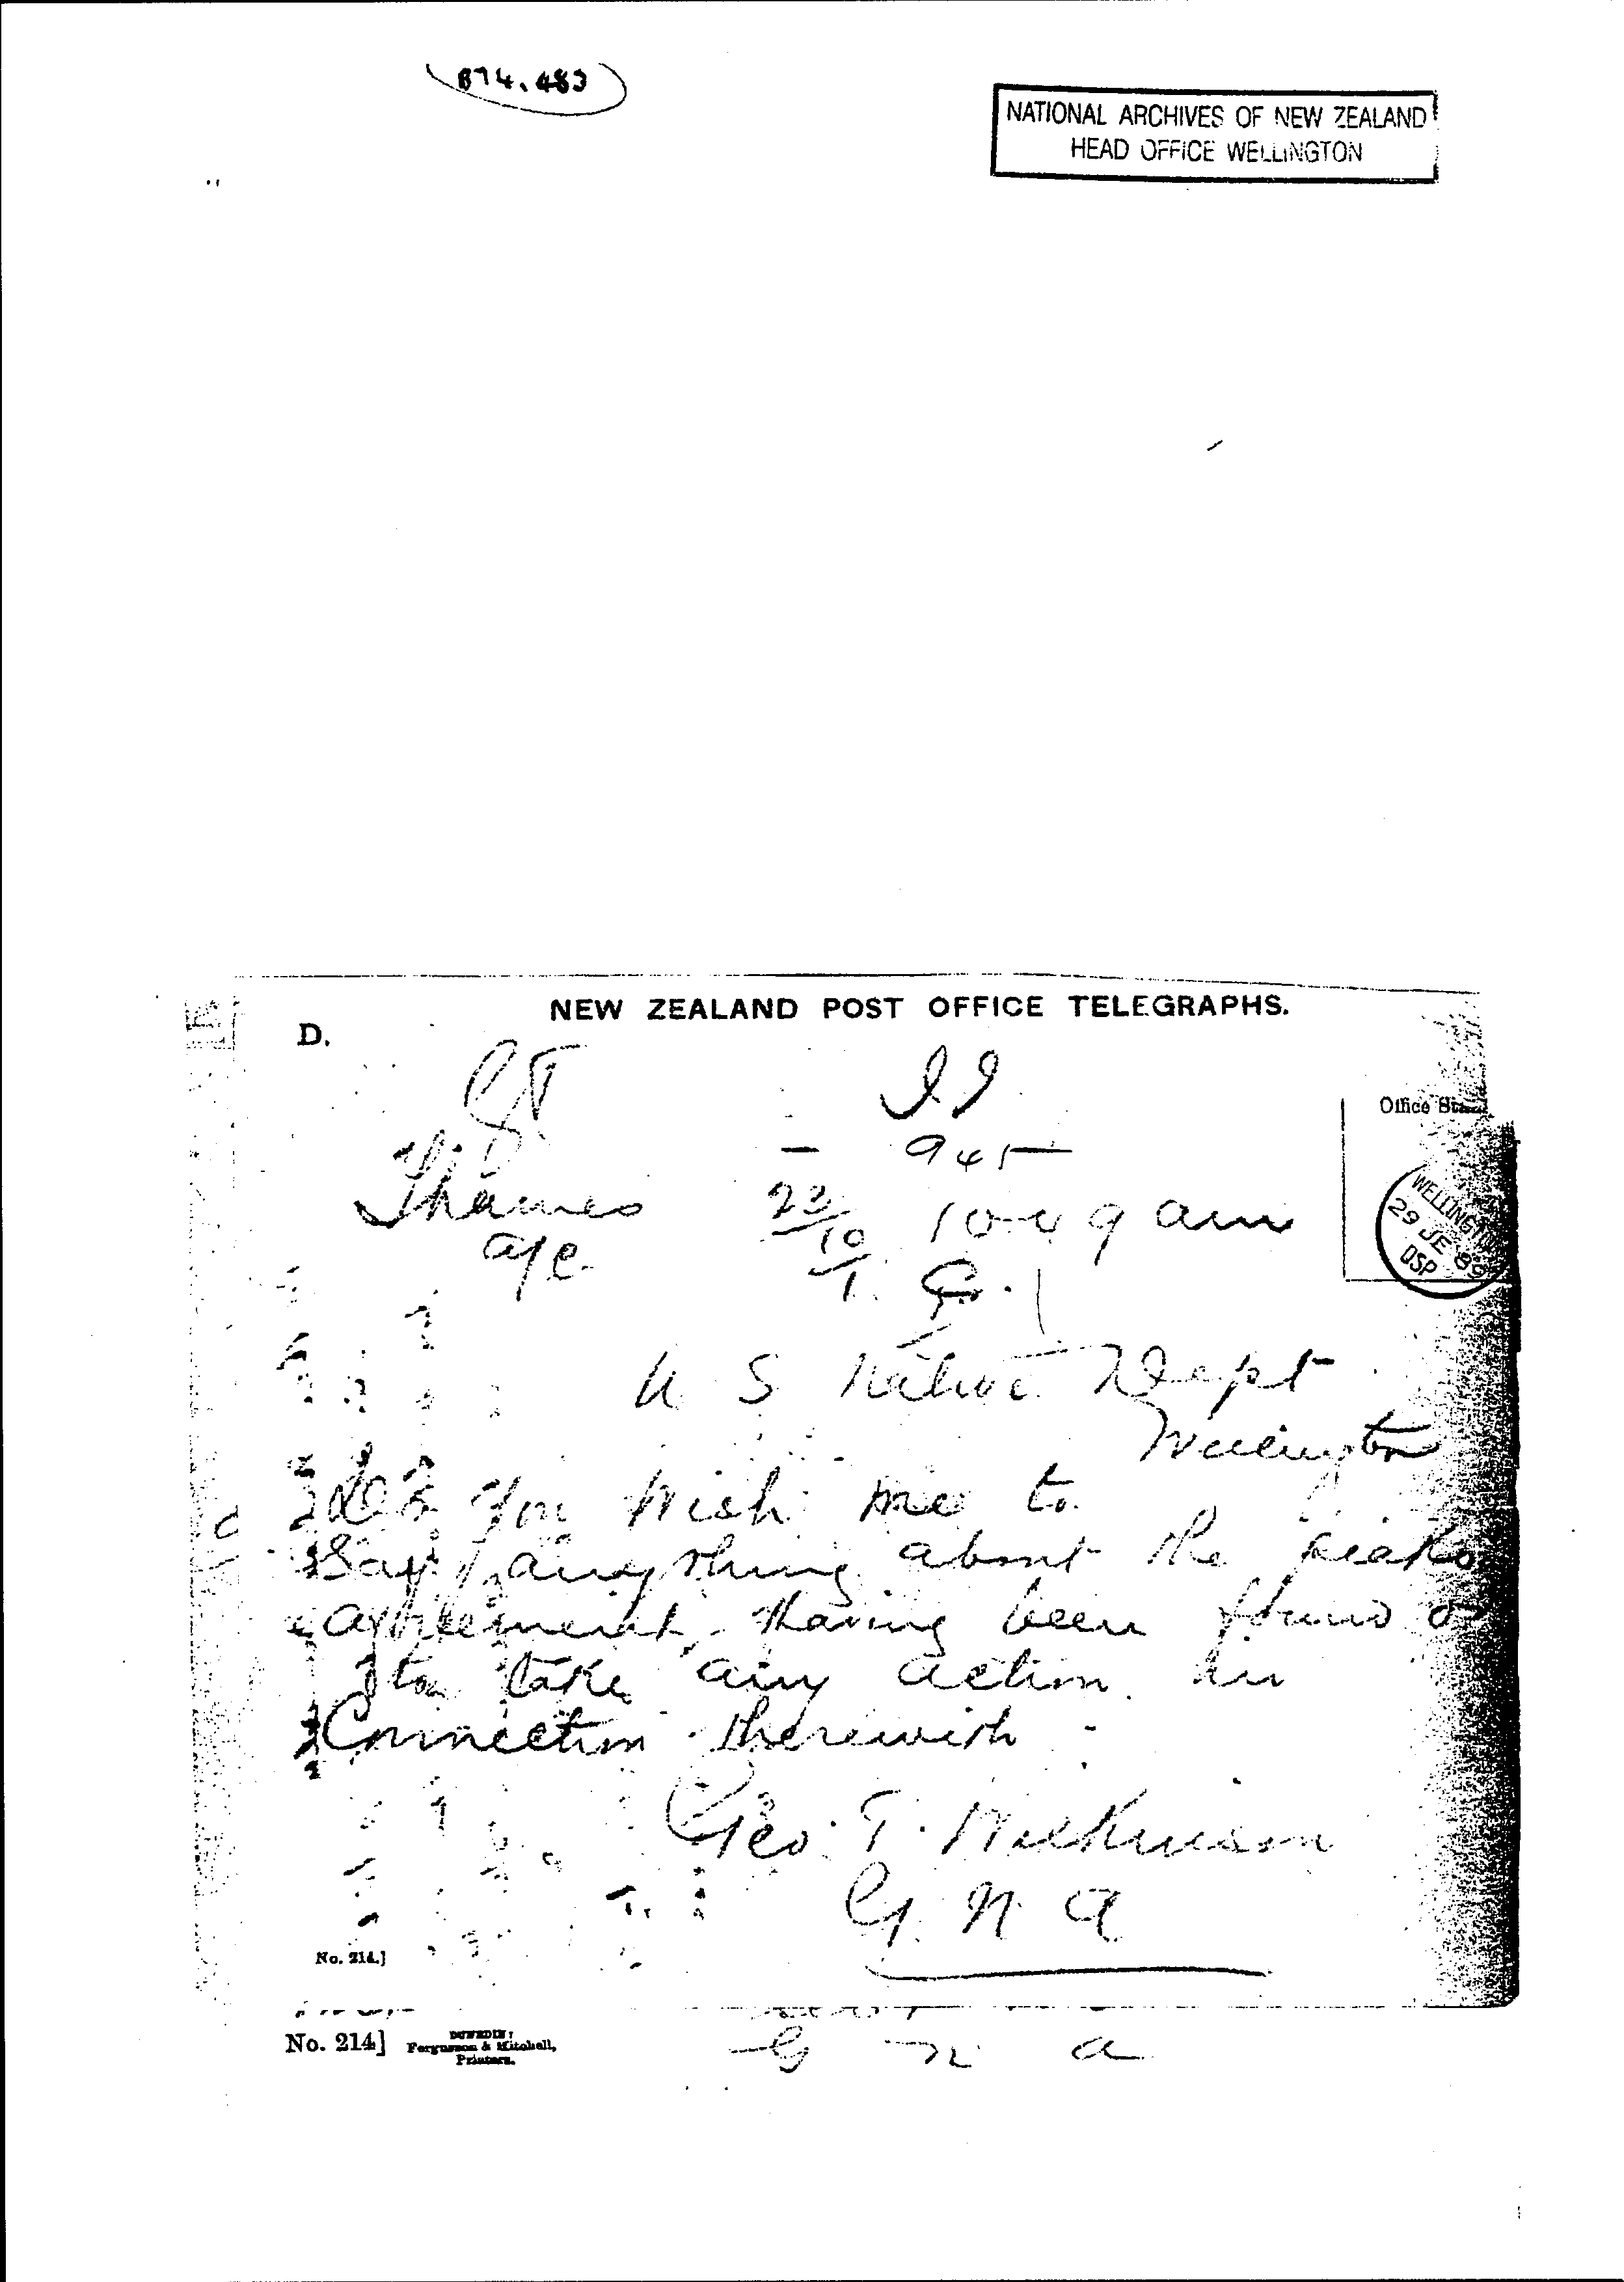 874.483
NATIONAL ARCHIVES OF NEW ZEALAND
HEAD OFFICE WELLINGTON
NEW ZEALAND POST OFFICE TELEGRAPHS.
D.
Office
945
Thames 23/10 10 49 am
a/c
WELLINGT
29 JE 89
OSP
U S Native Dept
Wellington
Do you wish me to
Say anything about the Piako
agreement having been found or
to take any action in
Connection therewith
Geo. T. Wilkinson
G. N. A
No. 214.]
No. 214] DUNEDIN:
Fergusson & Mitchell,
Printers.
G N A